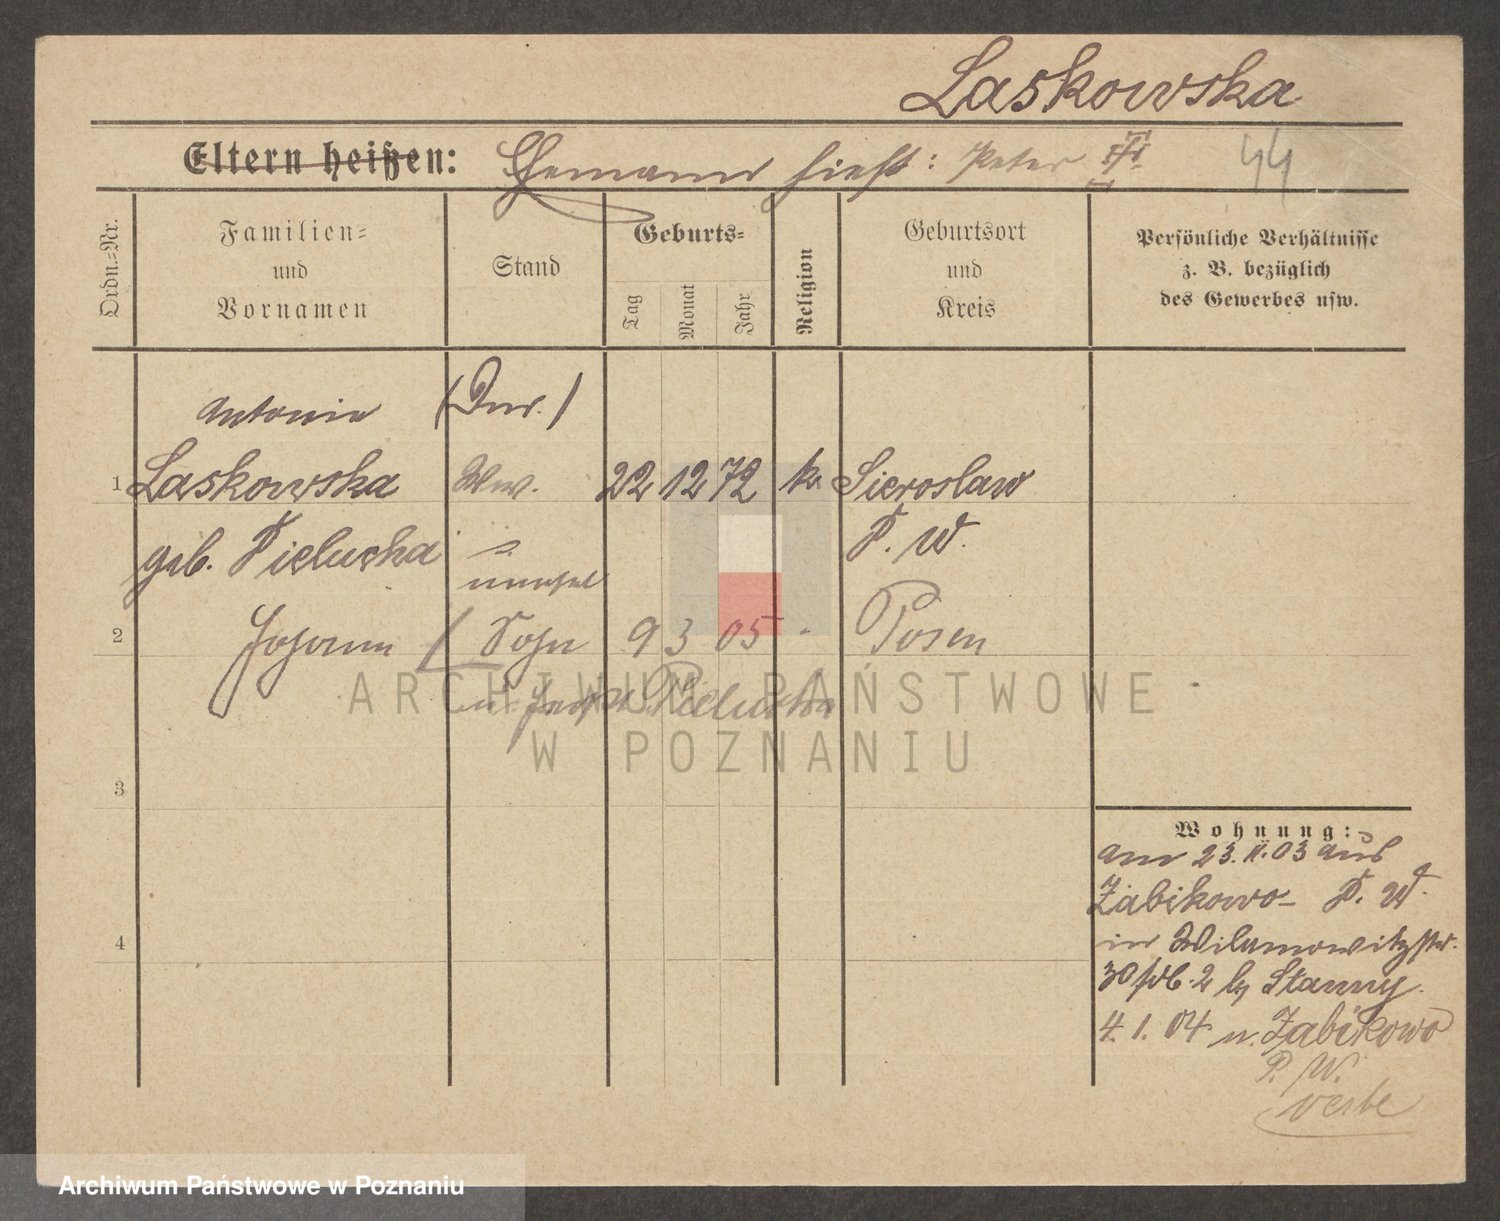 Laskowska
Eltern heißen: Ehemann hieß: Peter
44
Ordn.-Nr.
Familien-
und
Vornamen
Stand
Geburts-
Tag
Monat
Jahr
Religion
Geburtsort
und
Kreis
Persönliche Verhältnisse
z. B. bezüglich
des Gewerbes usw.
Antonie
1 Laskowska Ww. 22 12 72 k. Sieroslaw
geb. Pielucha P. W.
unehel
2 Johann Sohn 9 3 05 Posen
Pielucha
3
4
Wohnung:
am 23. 11. 03 aus
Zabikowo P. W.
in Wilamowitzstr.
30 Stanny
4. 1. 04 n. Zabikowo
P. W.
ARCHIWUM PAŃSTWOWE
W POZNANIU
Archiwum Państwowe w Poznaniu